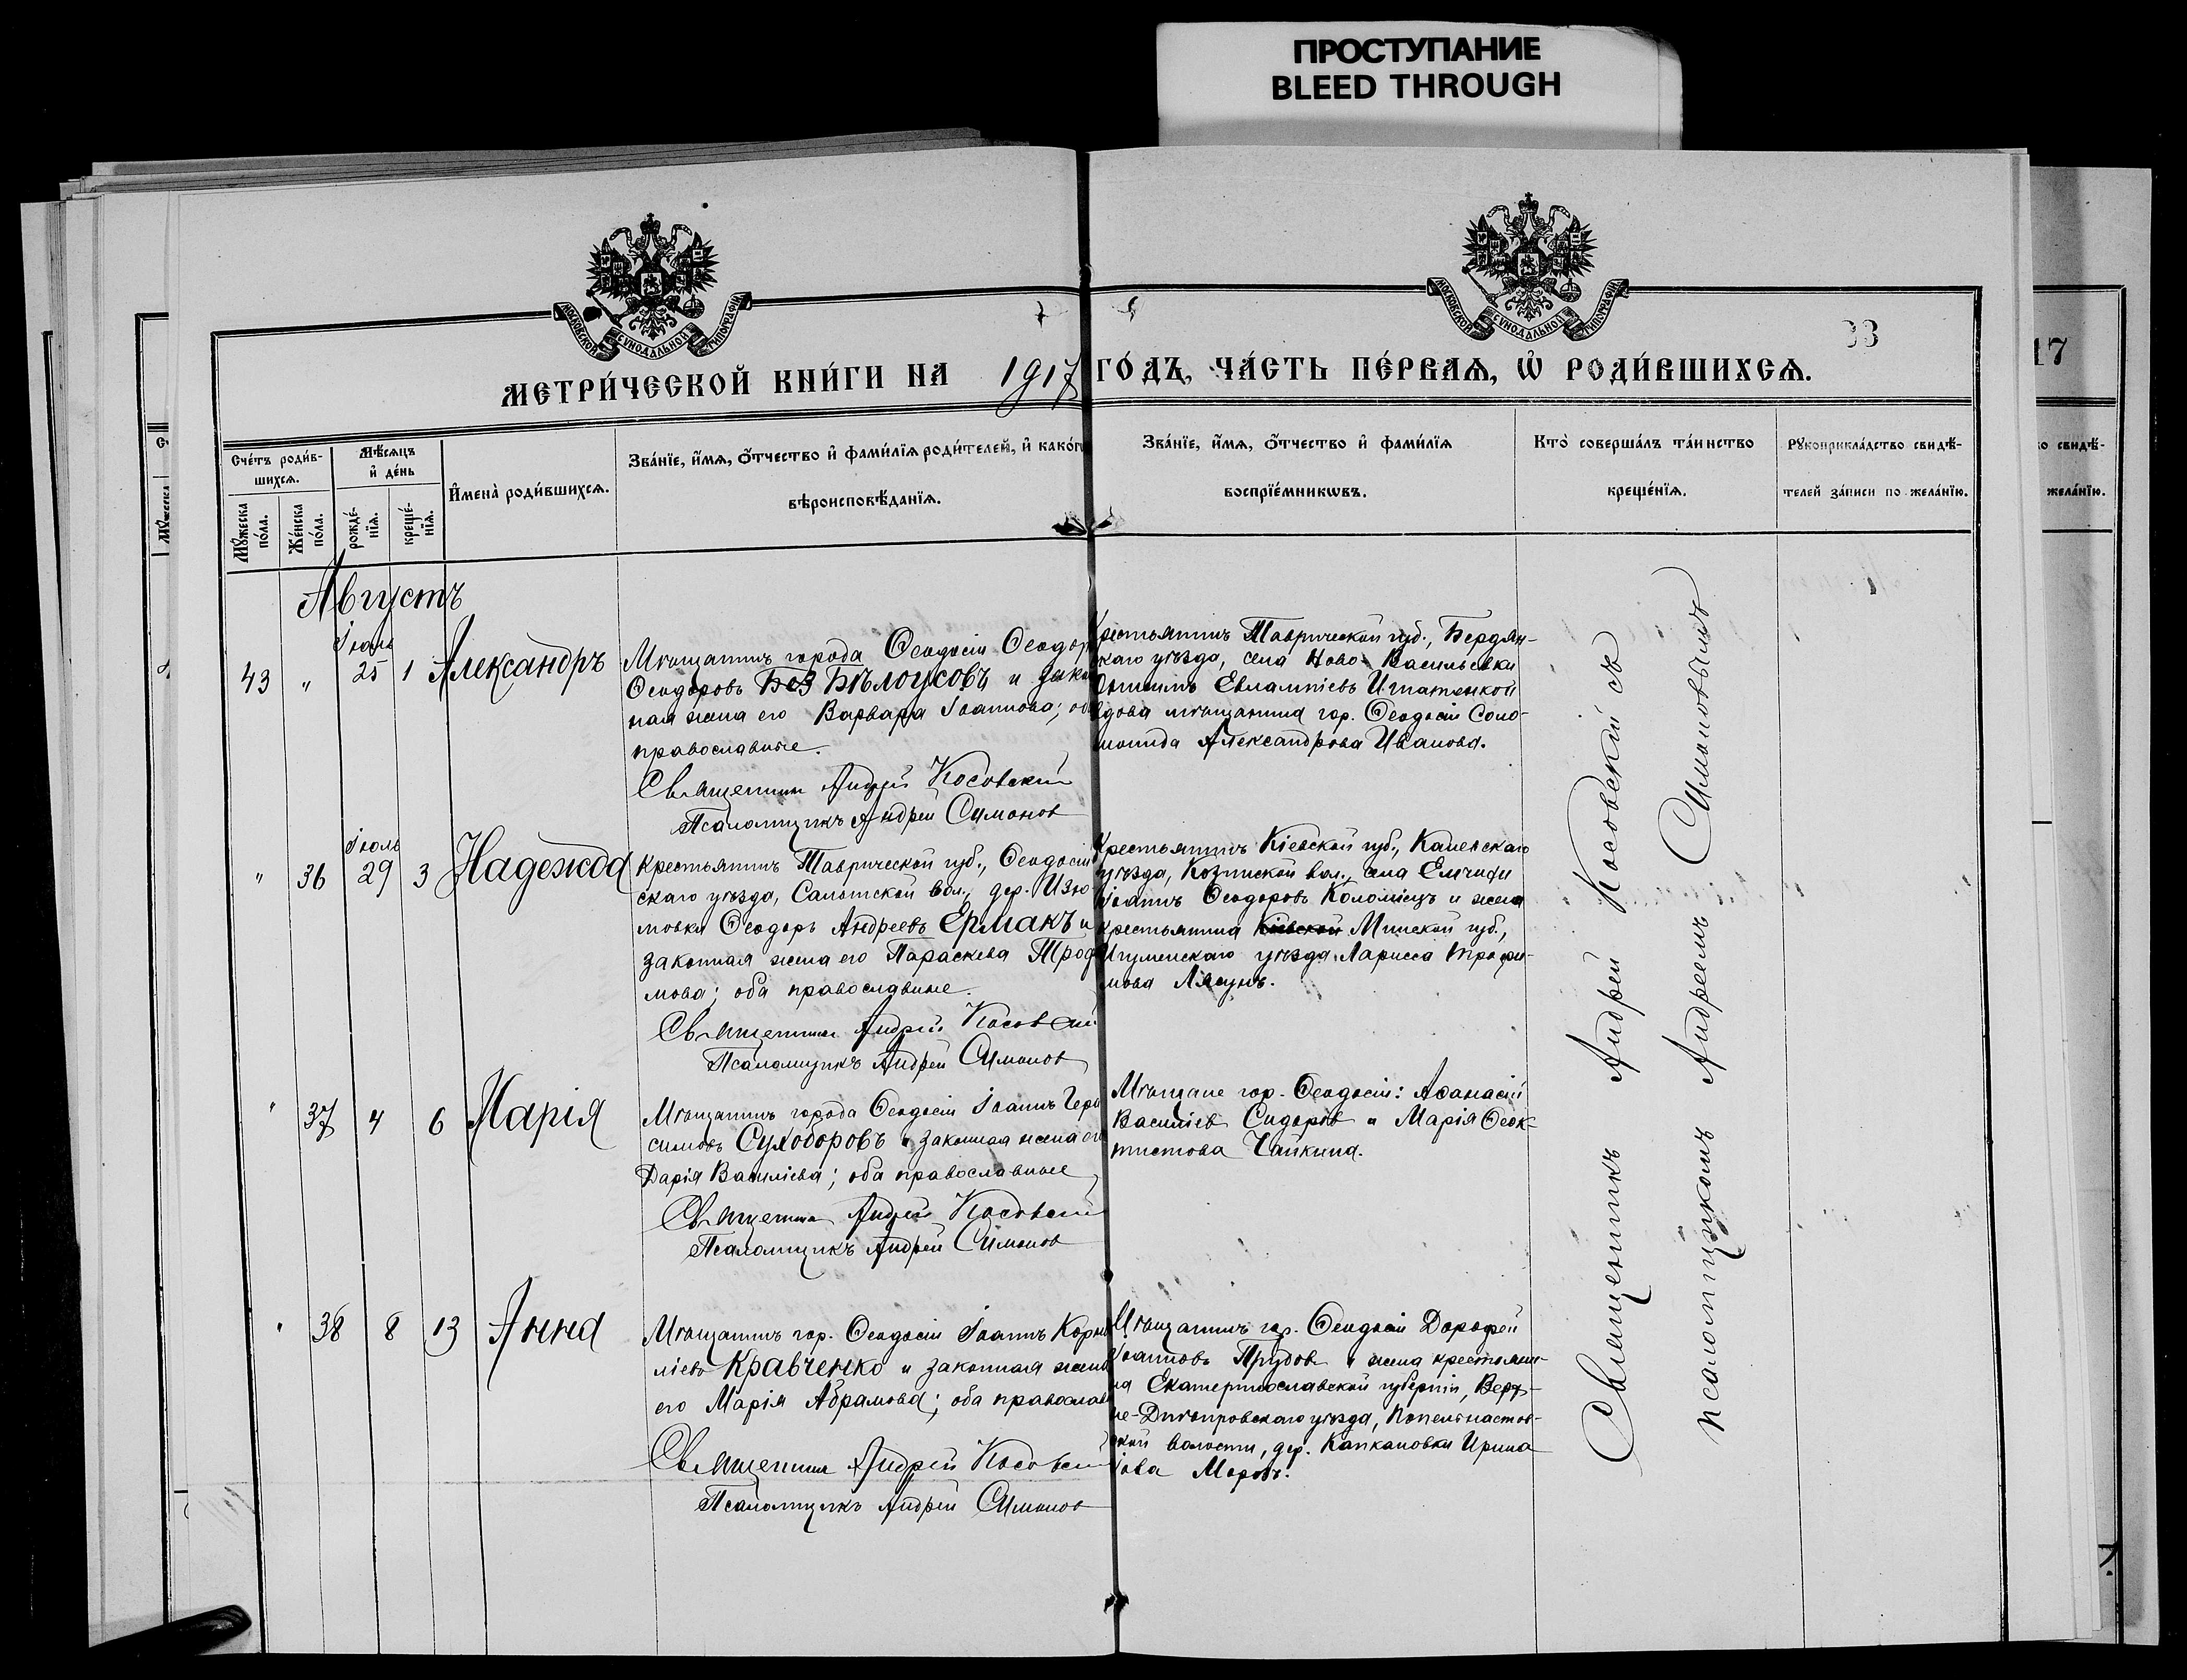 ПРОСТУПАНИЕ
BLEED THROUGH
МОСКОВСКОЙ СѴНОДАЛЬНОЙ ТИПОГРАФІИ
МОСКОВСКОЙ СѴНОДАЛЬНОЙ ТИПОГРАФІИ
33
17
МЕТРИ́ЧЕСКОЙ КНИ́ГИ НА 1917 ГО́ДЪ, ЧА́СТЬ ПЕ́РВАѦ, Ѡ҆ РОДИ́ВШИХСѦ.
Сче́тъ роди́в-
шихсѧ.
Мꙋ́жеска
по́ла.
Же́нска
по́ла.
Мѣ́сѧцъ
и҆ де́нь
рожде́-
нїѧ.
креще́-
нїѧ.
И҆мена̀ роди́вшихсѧ.
Зва́нїе, и҆́мѧ, ѻ҆́тчество и҆ фами́лїѧ роди́телей, и҆ како́гѡ
вѣроисповѣ́данїѧ.
Зва́нїе, и҆́мѧ, ѻ҆́тчество и҆ фами́лїѧ
воспрїе́мникѡвъ.
Кто̀ соверша́лъ та́инство
креще́нїѧ.
Рꙋкоприкла́дство свидѣ́-
телей за́писи по жела́нїю.
Августъ
Іюль
43 " 25 1 Александръ
Мѣщанинъ города Ѳеодосіи Ѳеодор
Ѳеодоровъ Без Бѣлоусовъ и зако
ная жена его Варвара Іоаннова; об
православные.
Священник Андрей Косовскій
Псаломщикъ Андрей Симонов
Крестьянинъ Таврической губ., Бердян-
скаго уѣзда, села Ново-Васильевки
Евлампіевъ Игнатенко и
вдова мѣщанина гор. Ѳеодосіи Соло-
монида Александрова Иванова.
Іюль
" 36 29 3 Надежда
Крестьянинъ Таврической губ., Ѳеодосій
скаго уѣзда, Салынской вол., дер. Изю-
мовки Ѳеодоръ Андреевъ Ермакъ и
законная жена его Параскева Троф
мова; оба православные.
Священник Андрей Косовскій
Псаломщикъ Андрей Симонов
Крестьянинъ Кіевской губ., Каневскаго
уѣзда, Козинской вол., села Емчихи
Іоаннъ Ѳеодоровъ Коломіецъ и жена
крестьянина Кіевской Минской губ.,
Игуменскаго уѣзда Ларисса Трофи-
мова Лясунъ.
" 37 4 6 Марія
Мѣщанинъ города Ѳеодосіи Іоаннъ Гера
симовъ Сухоборовъ и законная жена ег
Дарія Васильева; оба православные
Священник Андрей Косовскій
Псаломщикъ Андрей Симонов
Мѣщане гор. Ѳеодосіи: Аѳанасій
Васильев Сидоров и Марія Ѳеок-
тистова Чайкина.
" 38 8 13 Анна
Мѣщанинъ гор. Ѳеодосіи Іоаннъ Корни
ліевъ Кравченко и законная жена
его Марія Абрамова; оба православ
Священник Андрей Косовскій
Псаломщикъ Андрей Симонов
Мѣщанинъ гор. Ѳеодосіи Дорофей
Іоанновъ Прудов и жена крестьяни-
на Екатеринославской губерніи, Верх-
не-Днѣпровскаго уѣзда, Попельнастов-
ской волости, дер. Капкановки Ирина
Іова Морозъ.
Священникъ Андрей Косовскій съ
псаломщикомъ Андреемъ Симоновымъ